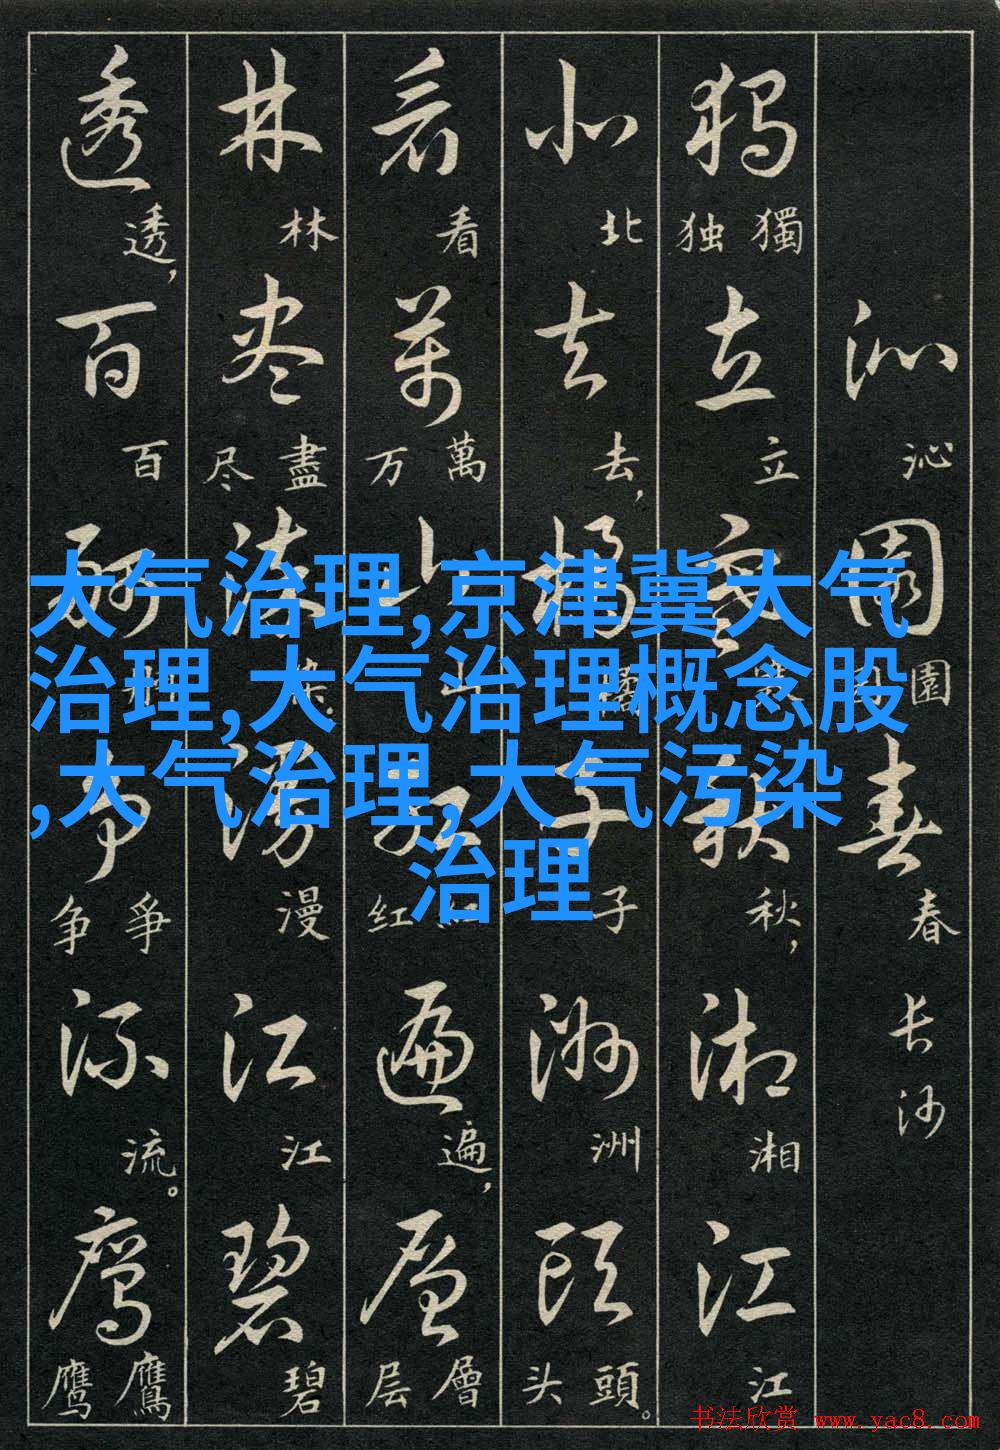 大气治理,京津冀大气
治理,大气治理概念股
,大气治理,大气污染
治理
沁園春
沁 園 春 长沙
獨立寒秋湘江
独獨 立 秋, 湘 江
北去橘子洲頭
北 去, 橘 子 洲 头頭。
看萬山红遍層
看 万萬 山 红 遍, 层層
林尽染漫江碧
林 尽盡 染. 漫 江 碧
透百舸争流鹰
透, 百 争爭 流。 鹰鷹
书法欣赏 www.yac8.com